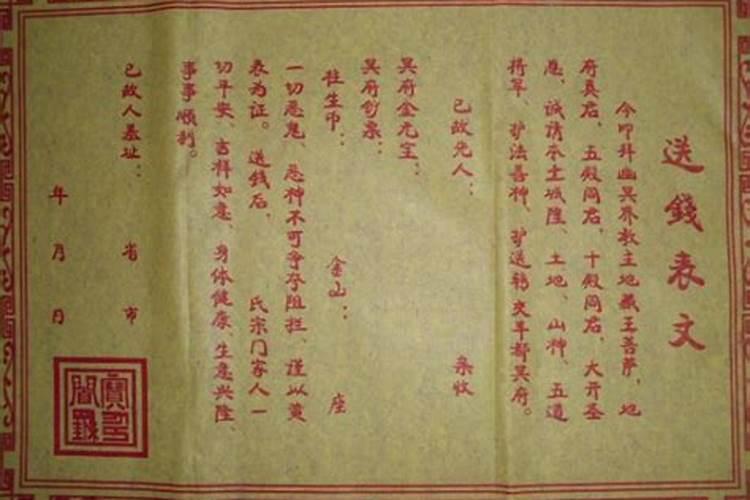 送錢表文
今叩拜幽冥界教主地藏王菩萨，地
府真君，五殿阎君，十殿阎君，大开圣
恩，诚请本土城隍、土地、山神、五道
将军、护法善神，护送转交丰都冥府。
已故先人： 亲收
冥府金元宝：
冥府钞票：
往生币： 金山： 座
一切恶鬼、恶神不可争夺阻拦，谨以黄
表为证。送钱后， 氏宗门家人一
切平安、吉祥如意、身体健康、生意兴隆、
事事顺利。
已故人墓址： 省 市
年 月 日